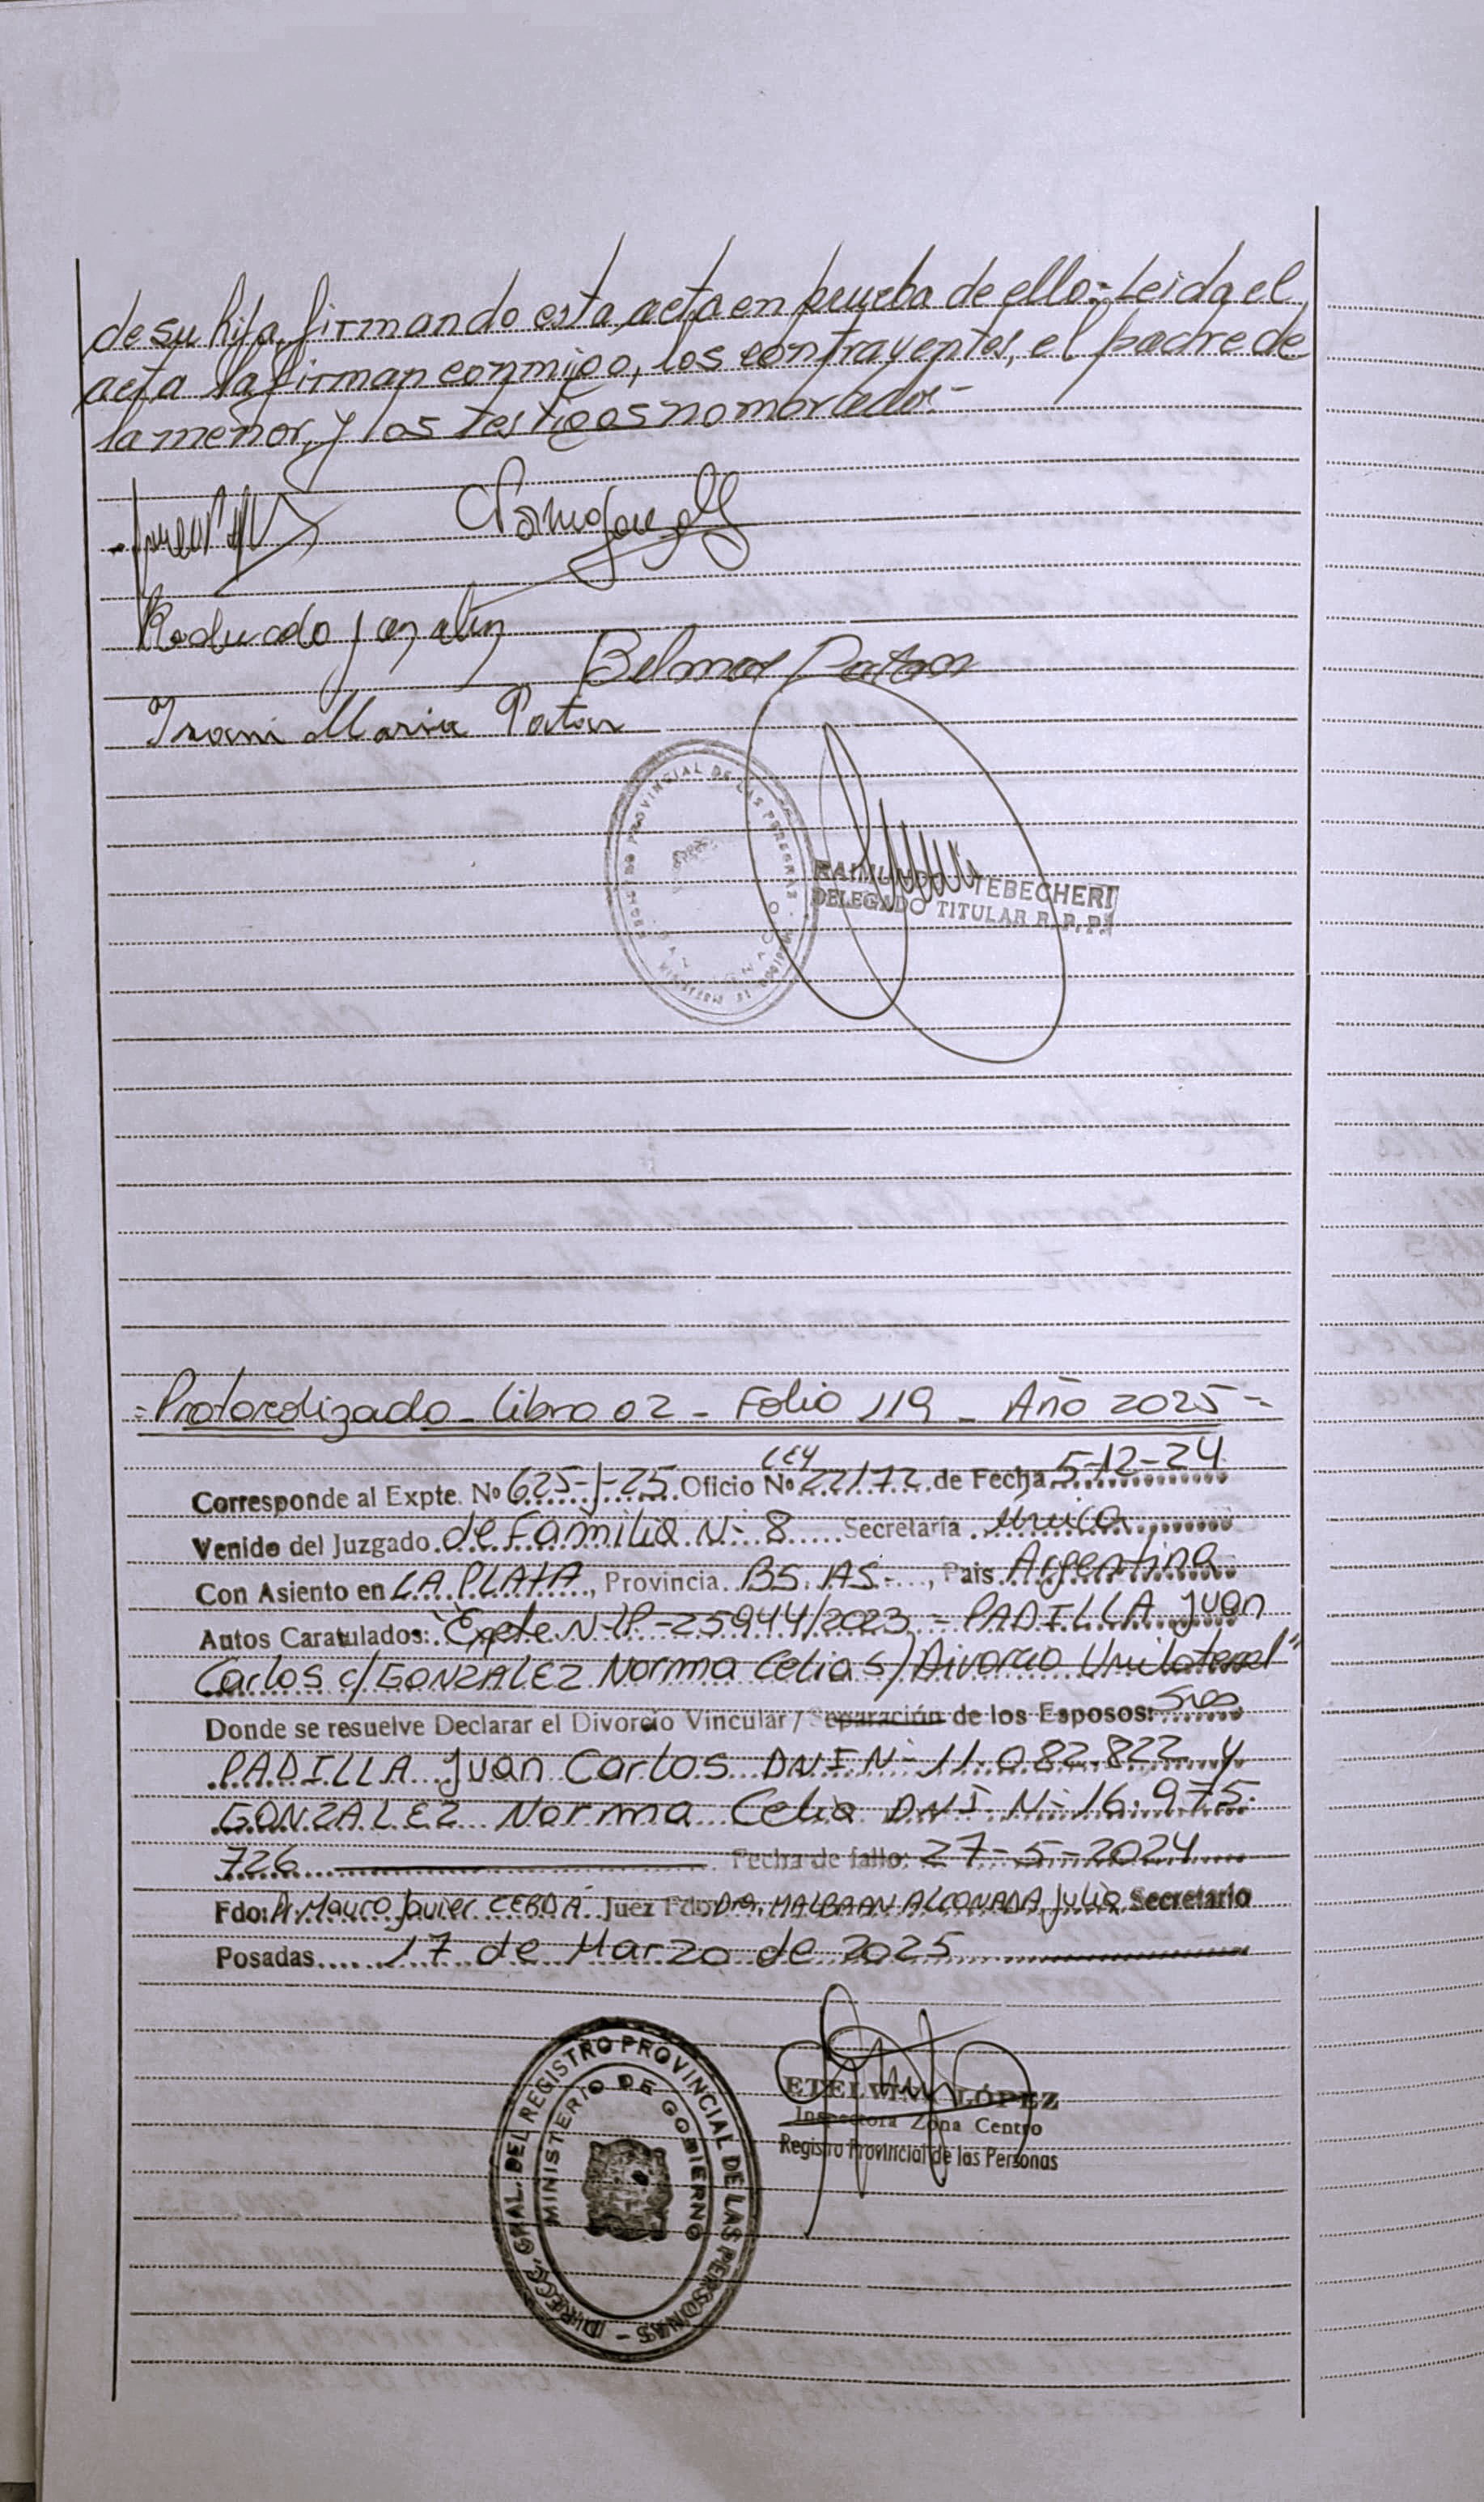 de su hija, firmando esta acta en prueba de ello.- Leida el
acta la firman conmigo, los contrayentes, el padre de
la menor, y los testigos nombrados.-
Belmar Patan
Irani Maria Patan
RAIMUNDO TEBECHERI
DELEGADO TITULAR R.P.P.
PROVINCIAL DE LAS PERSONAS
=Protocolizado - Libro 02 - Folio 119 - Año 2025=
Corresponde al Expte. Nº 625-J-25 Oficio Nº LEY 22172 de Fecha 5-12-24
Venido del Juzgado de Familia N- 8 Secretaría Unica
Con Asiento en LA PLATA, Provincia BS. AS-, Pais Argentina
Autos Caratulados: "Expte N- LP-25944/2023 = PADILLA Juan
Carlos c/ GONZALEZ Norma Celia S/ Divorcio Unilateral"
Donde se resuelve Declarar el Divorcio Vincular / Separación de los Esposos: Sres
PADILLA Juan Carlos DNI N- 11.082.822 y
GONZALEZ Norma Celia DNI N- 16.975.
726 Fecha de fallo: 27-5-2024
Fdo: Dr. Mauro Javier CERDÁ Juez Fdo: Dra. MALBRAN ALCONADA Julia Secretario
Posadas 17 de Marzo de 2025
DIRECC. GRAL. DEL REGISTRO PROVINCIAL DE LAS PERSONAS -
MINISTERIO DE GOBIERNO
ETELVINA LÓPEZ
Inspectora Zona Centro
Registro Provincial de las Personas